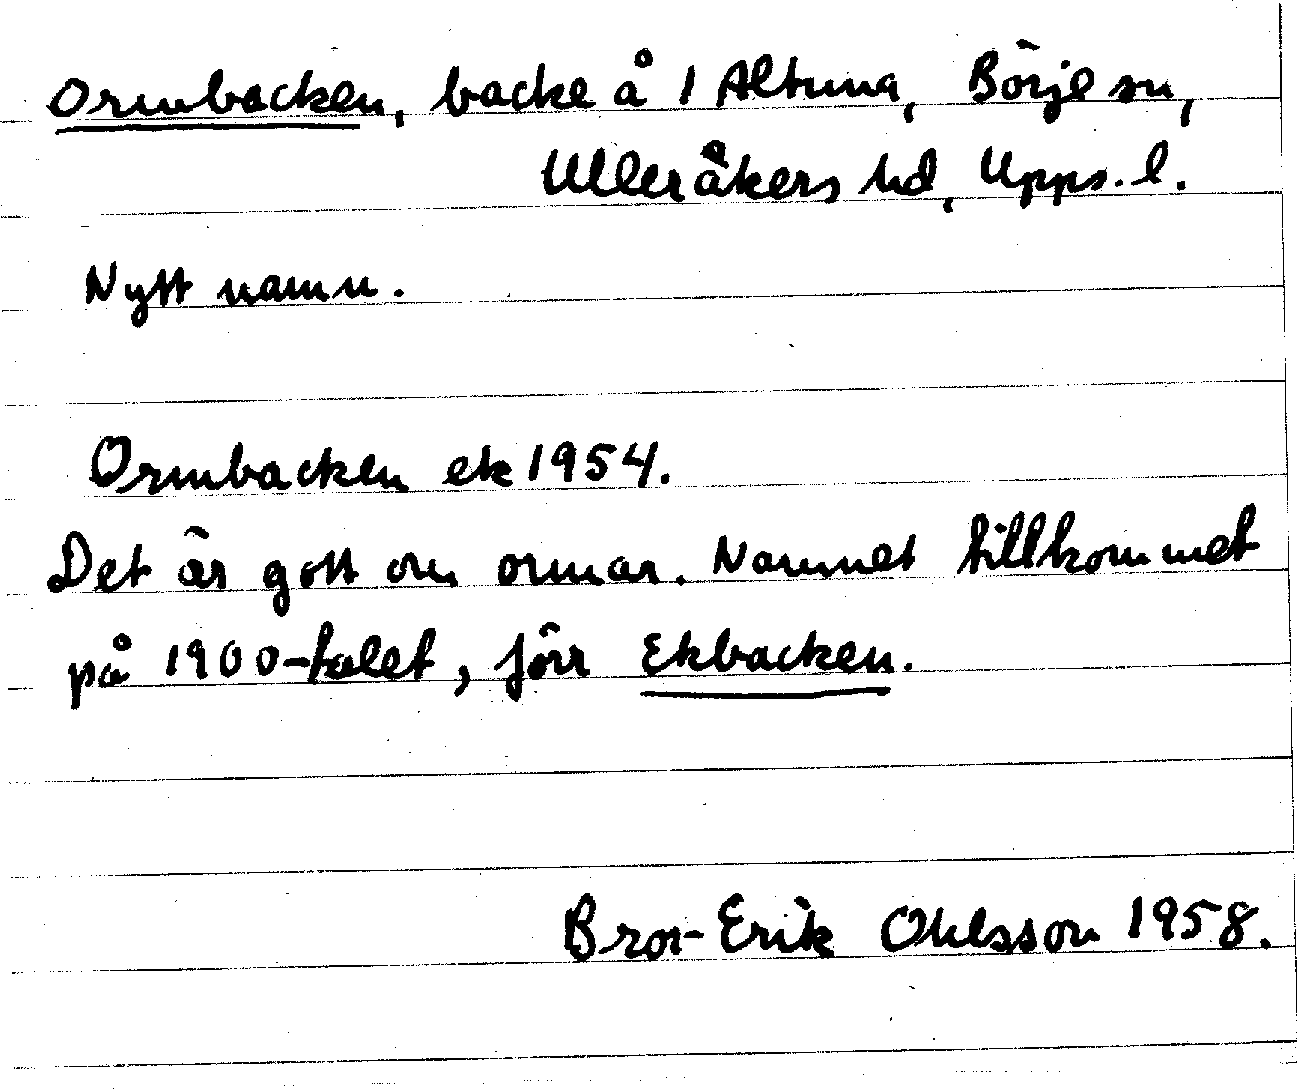 Ormbacken, backe å 1 Altuna, Börje sn,
Ulleråkers hd, Upps. l.
Nytt namn.
Ormbacken ek 1954.
Det är gott om ormar. Namnet tillkommet
på 1900-talet, förr Ekbacken.
Bror-Erik Ohlsson 1958.